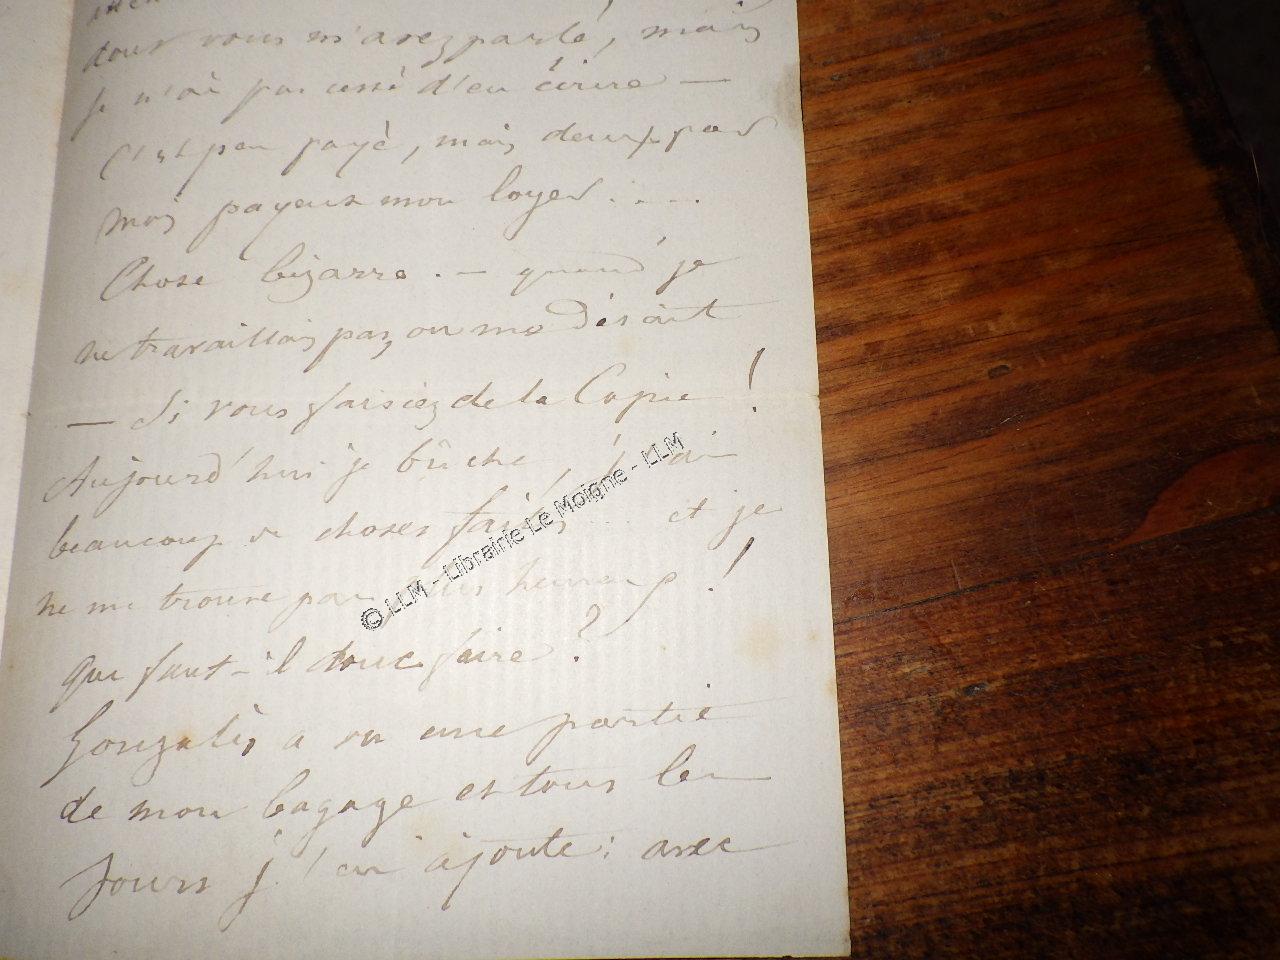 dont vous m'avez parlé, mais
Je n'ai pas cessé d'en écrire —
C'est peu payé, mais deux par
mois payent mon loyer . . . .
Chose bizarre . — quand je
ne travaillais pas, on me disait
— Si vous faisiez de la Copie !
Aujourd'hui je bûche, j'ai
beaucoup de choses faites ... et je
ne me trouve pas plus heureux !
Que faut-il donc faire ?
Gonzalès a vu une partie
de mon bagage et tous les
Jours j'en ajoute : avec
© LLM - Librairie Le Moigne - LLM